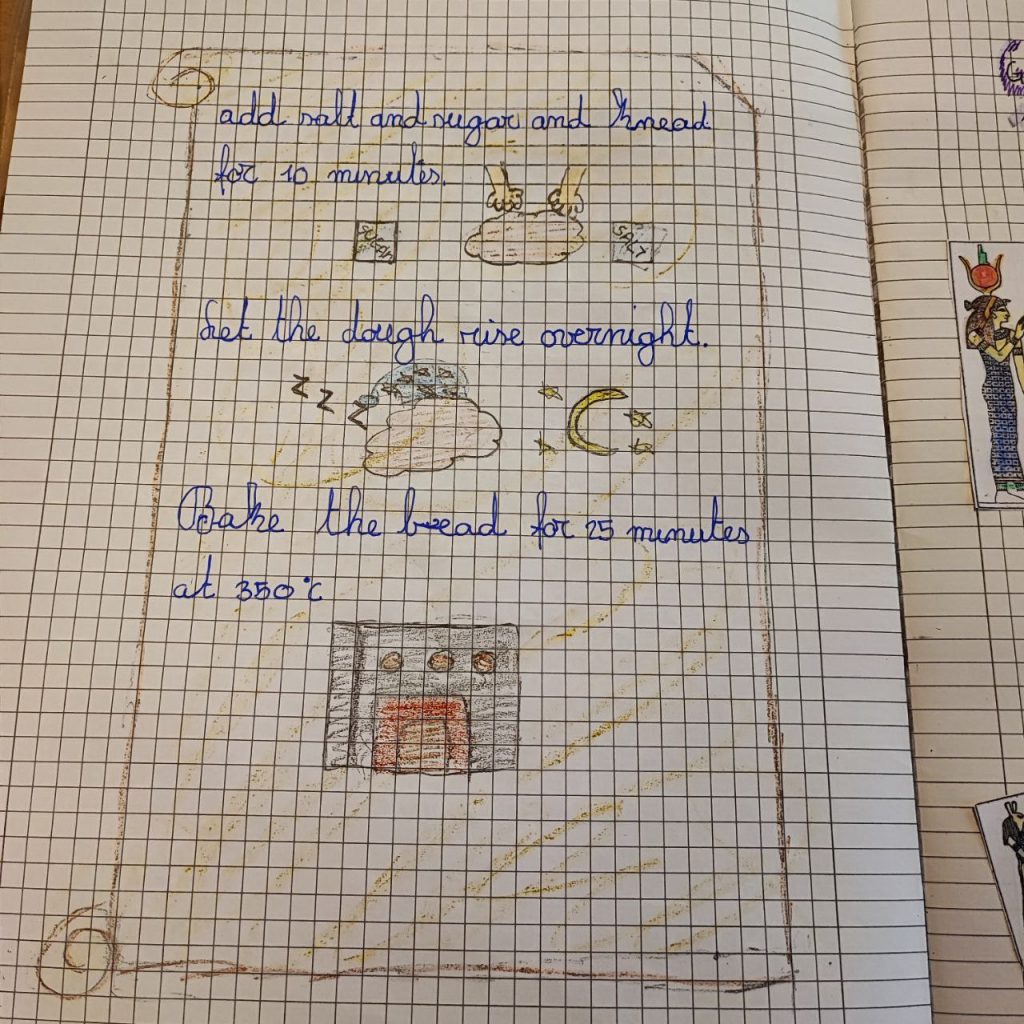 add salt and sugar and knead
for 10 minutes.
SUGAR
SALT
Let the dough rise overnight.
Z Z Z
Bake the bread for 25 minutes
at 350°C